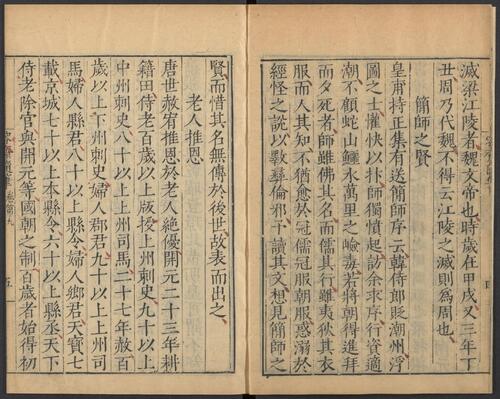 滅梁江陵者魏文帝也時歲在甲戌又三年丁
丑周乃代魏不得云江陵之滅則為周也
簡師之賢
皇甫持正集有送簡師序云韓侍郎貶潮州浮
圖之士懽快以抃師獨憤起訪余求序行資適
潮不顧蛇山鱷水萬里之嶮毒若將朝得進拜
而夕死者師雖佛其名而儒其行雖夷狄其衣
服而人其知不猶愈於冠儒冠服朝服惑溺於
經怪之說以斁彝倫邪予讀其文想見簡師之
賢而惜其名無傳於後世故表而出之
老人推恩
唐世赦宥推恩於老人絶優開元二十三年耕
籍田侍老百歲以上版授上州刺史九十以上
中州刺史八十以上上州司馬二十七年赦百
歲以上下州刺史婦人郡君九十以上上州司
馬婦人縣君八十以上縣令婦人鄉君天寶七
載京城七十以上本縣令六十以上縣丞天下
侍老除官與開元等國朝之制百歲者始得初
五